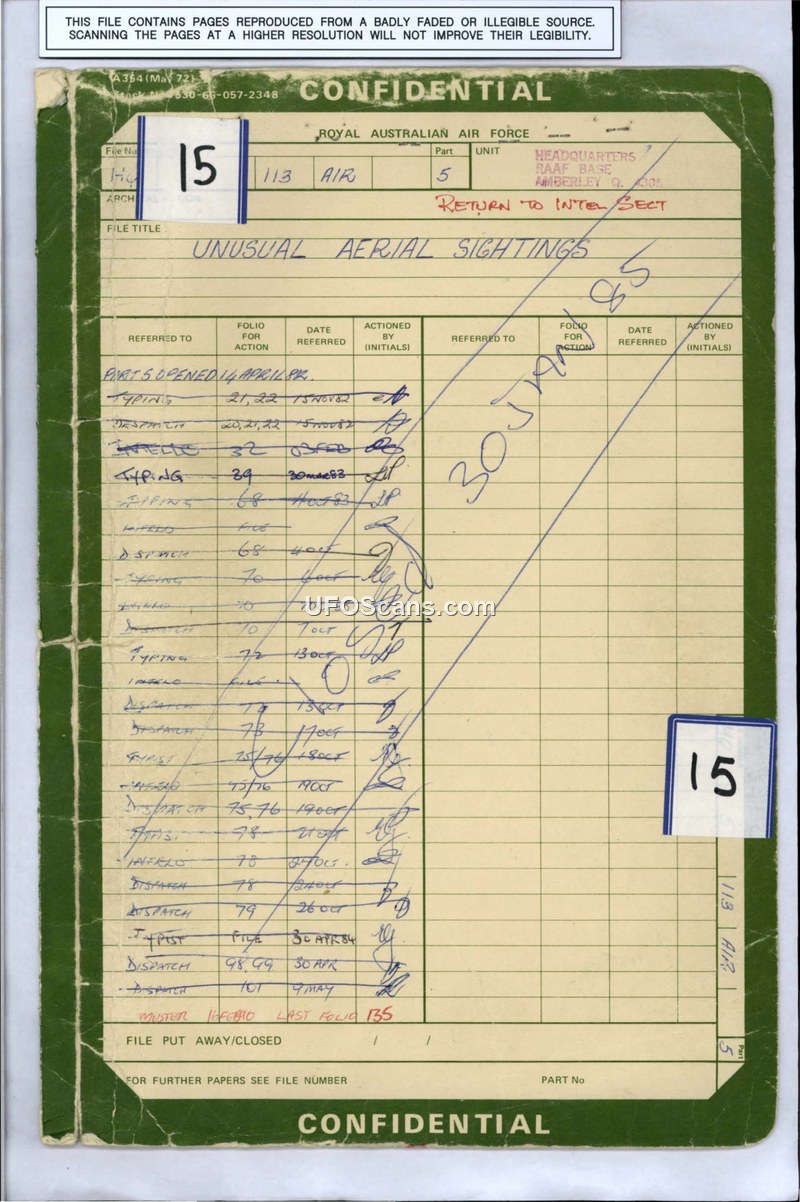 THIS FILE CONTAINS PAGES REPRODUCED FROM A BADLY FADED OR ILLEGIBLE SOURCE.
SCANNING THE PAGES AT A HIGHER RESOLUTION WILL NOT IMPROVE THEIR LEGIBILITY.
A354 (May 72)
CONFIDENTIAL
ROYAL AUSTRALIAN AIR FORCE
Part UNIT
15 113 AIR 5
HEADQUARTERS
RAAF BASE
AMBERLEY Q. 4305
RETURN TO INTEL SECT
FILE TITLE
UNUSUAL AERIAL SIGHTINGS
30 JAN 85
REFERRED TO FOLIO FOR ACTION DATE REFERRED ACTIONED BY (INITIALS) REFERRED TO FOLIO FOR ACTION DATE REFERRED ACTIONED BY (INITIALS)
PART 5 OPENED 14 APRIL 82.
TYPING 21,22 15 NOV 82
DESPATCH 20,21,22 15 NOV 82
32 03 FEB
TYPING 39 30 MAR 83
TYPING 68 4 OCT 83
INTELO FILE
DISPATCH 68 4 OCT
TYPING 70 6 OCT
UFOScans.com
DISPATCH 70 7 OCT
TYPING 72 13 OCT
INTELO FILE
DISPATCH 72 13 OCT
DISPATCH 73 17 OCT
TYPIST 75/76 18 OCT
INTELO 75/76 19 OCT
DISPATCH 75,76 19 OCT
TYPIST 78 21 OCT
INTELO 78 24 OCT.
DISPATCH 78 24 OCT
DISPATCH 79 26 OCT
TYPIST FILE 30 APR 84
DISPATCH 98,99 30 APR
DISPATCH 101 9 MAY
MUSTER LAST FOLIO 135
FILE PUT AWAY/CLOSED / /
FOR FURTHER PAPERS SEE FILE NUMBER PART No
CONFIDENTIAL
15
113 AIR
Part 5